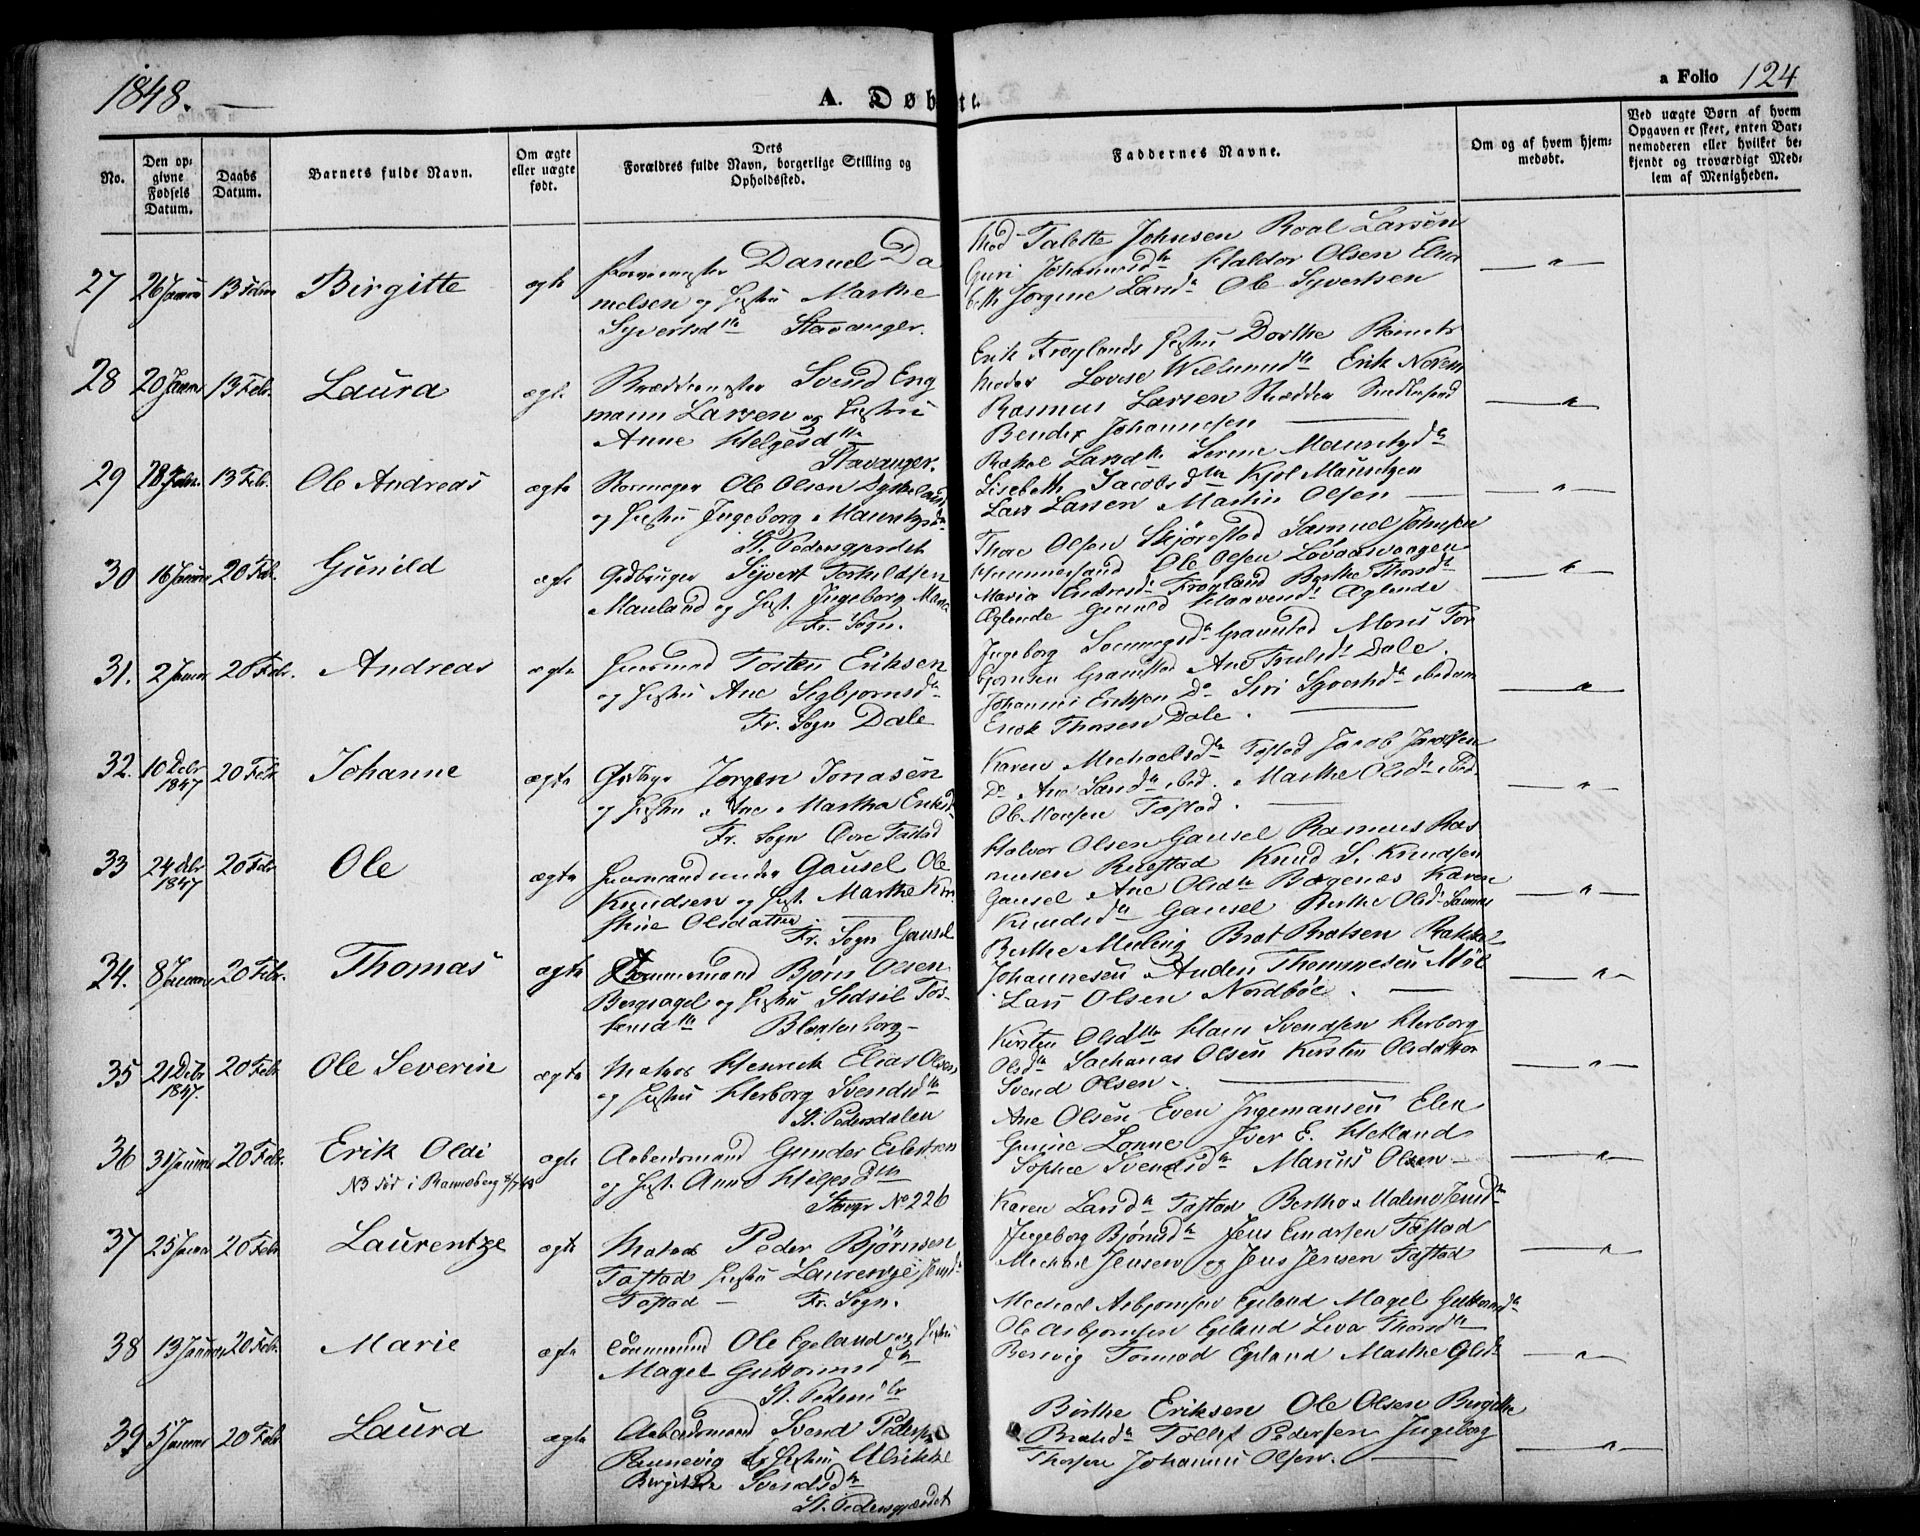 1848.
A. Døbte.
a Folio 124
No.
Den op-
givne
Fødsels
Datum.
Daabs
Datum.
Barnets fulde Navn.
Om ægte
eller uægte
født.
Dets
Forældres fulde Navn, borgerlige Stilling og
Opholdssted.
Faddernes Navne.
Om og af hvem hjem-
medøbt.
Ved uægte Børn af hvem
Opgaven er skeet, enten Bar-
nemoderen eller hvilket be-
kjendt og troværdigt Med-
lem af Menigheden.
27 26 Januar 13 Febr Birgitte ægte
Daniel Da
nielsen og Hustru Marthe
Syvertsdtr Stavanger.
Talette Johnsen Roal Larsen
Guri Johannesdtr Haldor Olsen Elisa
beth Jorgine Larsdtr Ole Syvertsen
28 20 Januar 13 Febr. Laura ægte
Skræddermester Svend Eng
mann Larsen og Hustru
Anne Helgesdtr
Stavanger.
Erik Frøylands Hustru Dorthe
Lovise Erik
Rasmus Larsen Skrædder
Bendix Johannesen
29 13 Febr. Ole Andreas ægte
Ole Olsen
og Hustru Ingeborg Mauritzdtr
St. Pedersgjerdet
Rakel Larsdtr Serine Mauritzdtr
Lisebeth Jacobsdtr Kjel Mauritzen
Lars Larsen Martin Olsen
30 16 Januar 20 Feb. Gunild ægte
Gdbruger Syvert Torkildsen
Mauland og Hust. Ingeborg
Fr. Sogn.
Thore Olsen Skjørestad Samuel Johnsen
Hummersand Ole Olsen Lovaasvaagen
Maria Endresdtr Frøyland Berthe Thorsdtr
Øglende Gunild Haaversdtr Øglende
31. 2 Januar 20 Febr. Andreas ægte
Huusmand Tosten Eriksen
og Hustru Ane Sigbjørnsdtr
Fr. Sogn Dale
Ingeborg Gramstad Mons Tor
bjørnsen Gramstad Ane Trulsdtr Dale.
Johannes Eriksen Do Siri Syvertsdtr ibidem
Erik Thorsen Dale.
32. 10 Debr 1847 20 Febr Johanne ægte
Jørgen Jonasen
og Hustru Ane Martha Eriksdtr
Fr. Sogn Øvre Tastad
Karen Michaelsdtr Tastad Jacob Jacobsen
Do Ane Larsdtr ibid. Marthe Olsdtr ibid.
Ole Monsen Tastad.
33 24 Debr 1847 20 Febr Ole ægte
Huusmand under Gausel Ole
Knudsen og Hust. Marthe Kir
stine Olsdatter
Fr. Sogn Gausel
Halvor Olsen Gausel Rasmus Ras
musen Ruestad Knud S. Knudsen
Gausel Ane Olsdtr Bøgenæs Karen
Knudsdtr Gausel Berthe Olsdtr
34. 8 Januar 20 Febr. Thomas ægte
Tømmermand Bjørn Olsen
Bergsagel og Hustru Sidsil Tor
kensdtr Blaatenborg
Berthe Meling Brat Bratsen Rakkel
Johannesen Anders Thommesen
Lars Olsen Nordbøe.
35 21 Debr 1847. 20 Febr Ole Severin ægte
Matros Henrik Elias Olsen
og Hustru Herborg Svendsdtr
St. Pedersdalen
Kirsten Olsdtr Hans Svendsen Herborg
Olsdtr Sacharias Olsen Kirsten Olsdatter
Svend Olsen
36 31 Januar 20 Febr. Erik Oldi ægte
NB død i Ranneberg
Arbeidsmand Gunder
og Hust. Anne Helgesdtr
Stvgr No 226
Ane Olsen Even Ingemansen Elen
Gurine Lonne Iver E. Hetland
Sophie Svendsdtr Marius Olsen
37 25 Januar 20 Febr Laurentze ægte
Matros Peder Bjørnsen
Tastad Hustru Laurentze Jensdtr
Tastad Fr. Sogn.
Karen Larsdtr Tastad Bertha Malene Jensdtr
Ingeborg Bjørnsdtr Jens Einersen Tastad
Michael Jensen og Jens Jensen Tastad
38 13 Januar 20 Febr. Marie ægte
Tømmermand Ole Egeland og Hustru
Magel Guttormsdtr
Michael Asbjørnsen Egeland Magel Guttormsdtr
Ole Asbjørnsen Egeland Liva Thorsdtr
Tonnes Egeland Marthe Olsdtr
39 5 Januar 20 Febr Laura ægte
Arbeidsmand Svend Pedersen
og Hustru Ulrikke
Birgitte Svendsdtr
St. Pedersgjerdet
Birthe Eriksen Ole Olsen Birgitte
Bratsdtr Tollef Pedersen Ingeborg
Thorsen Johannes Olsen.